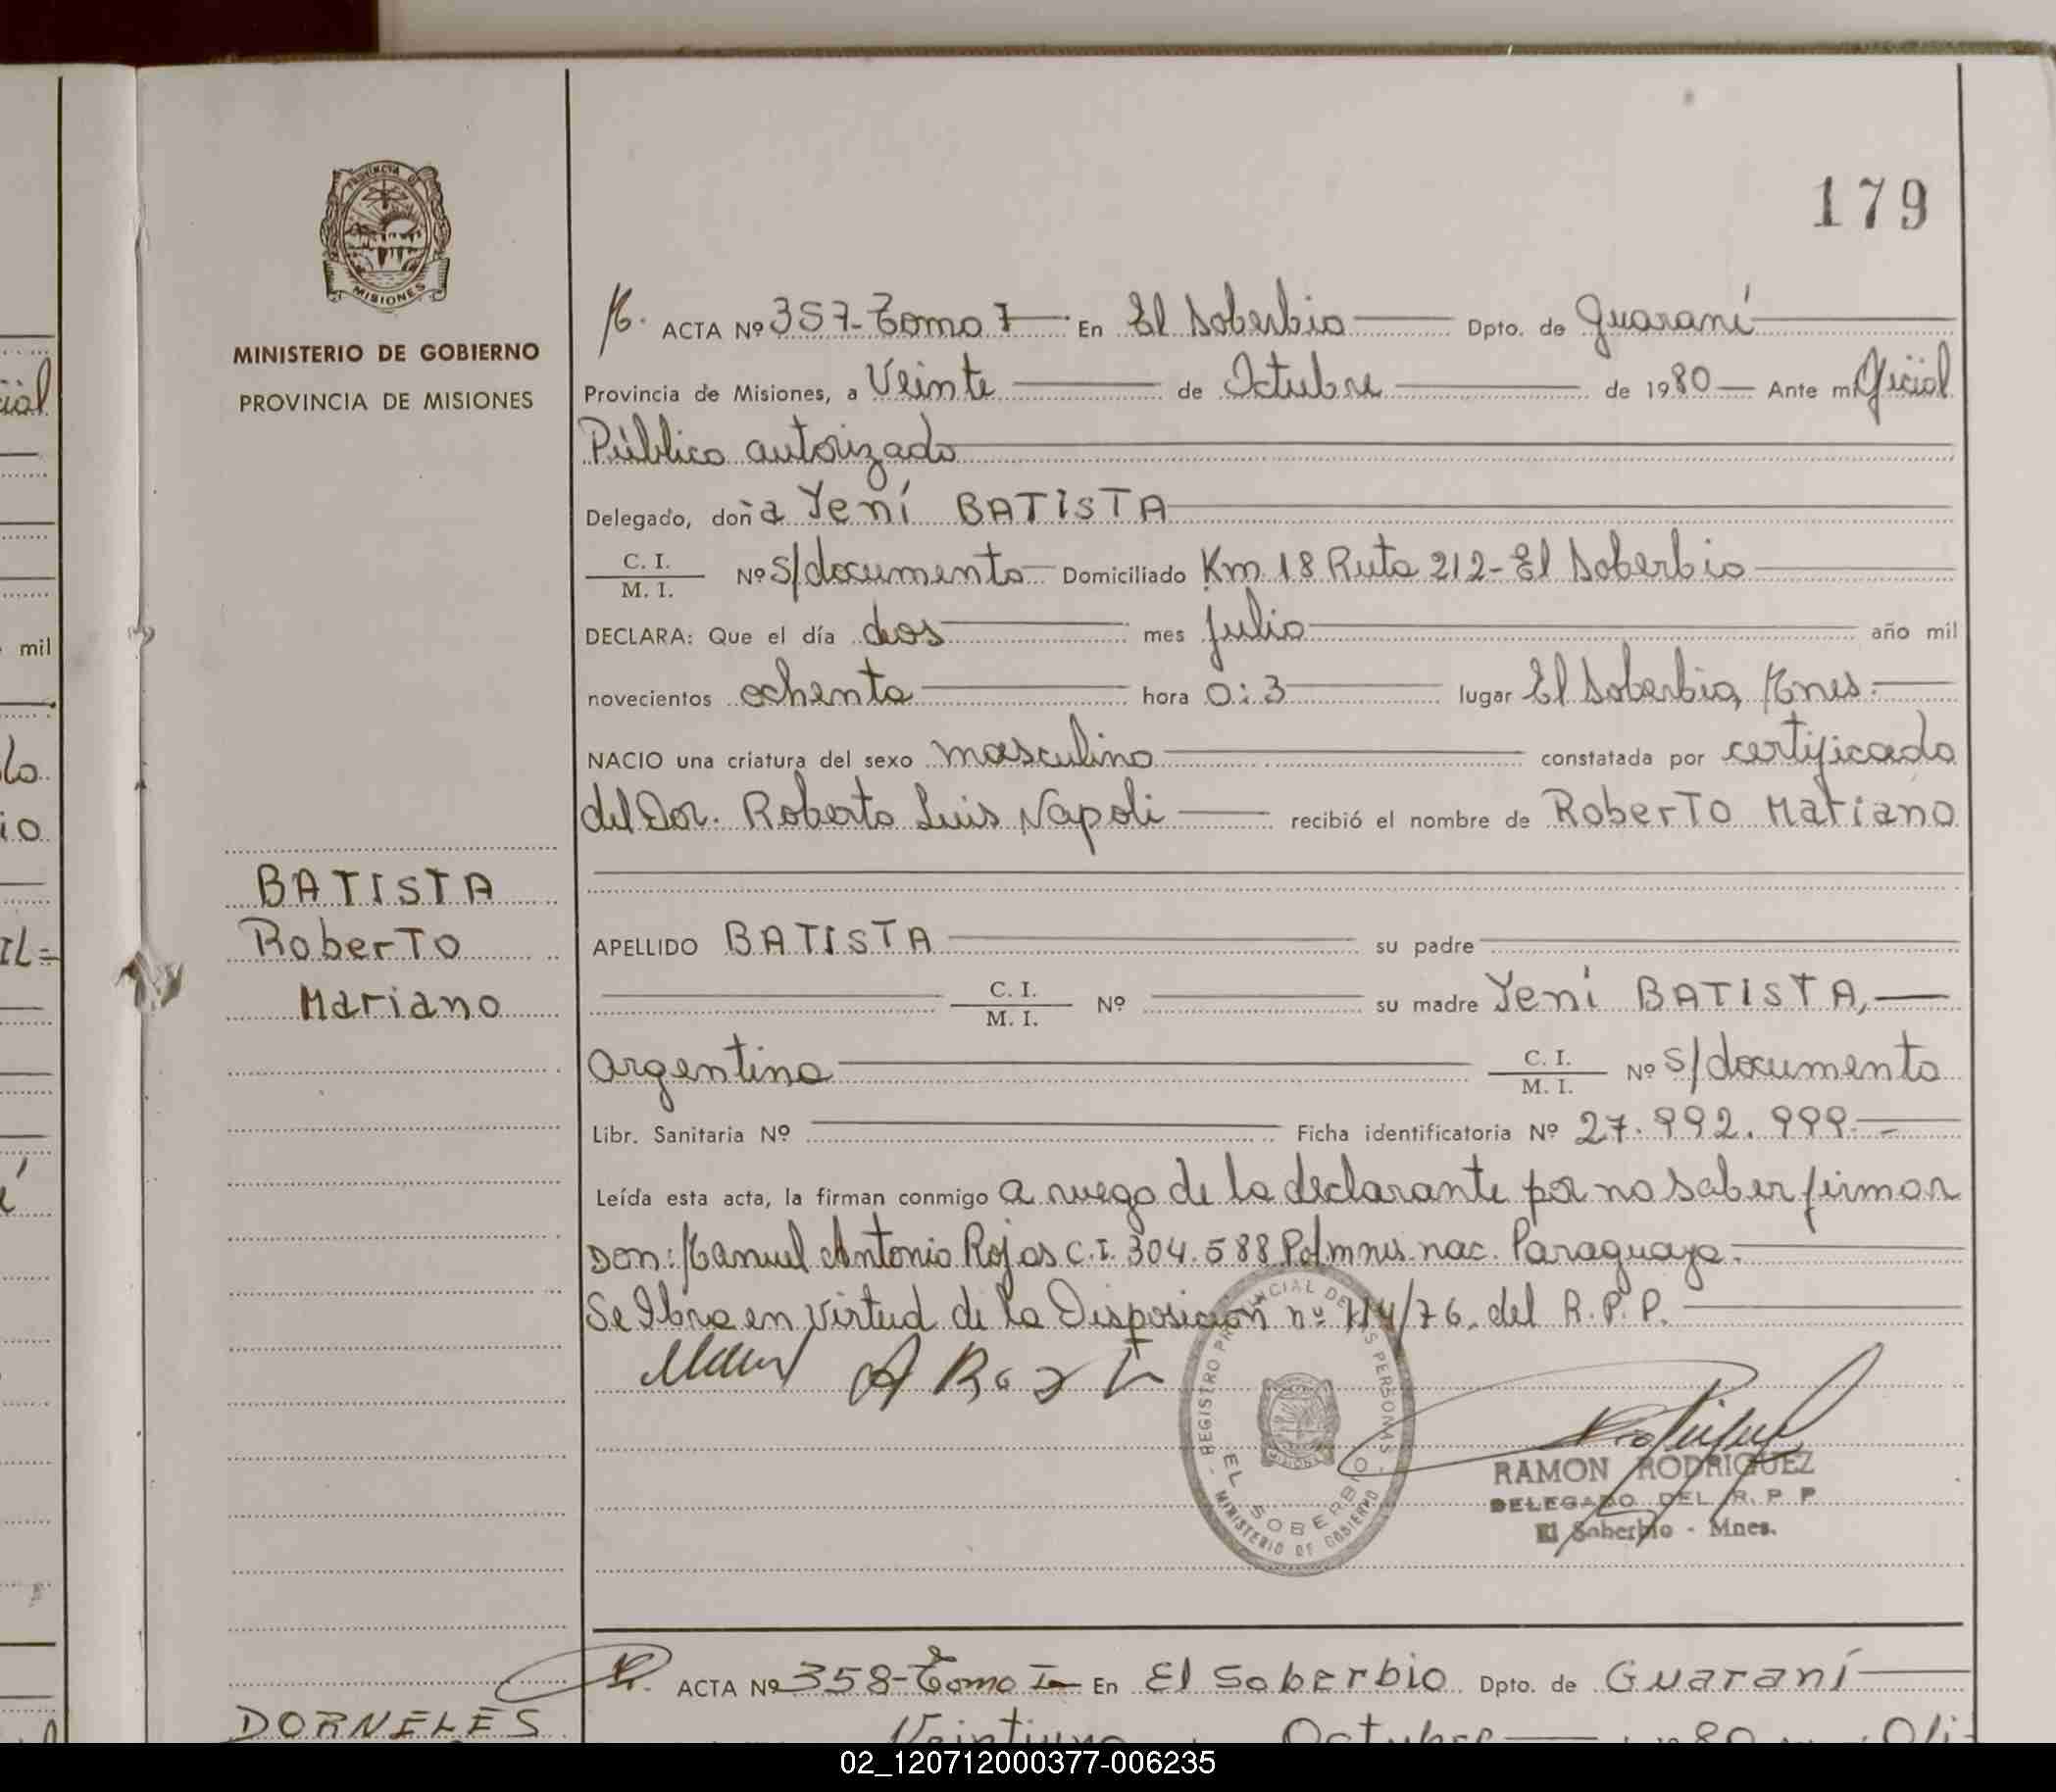 179
PROVINCIA DE
MISIONES
MINISTERIO DE GOBIERNO
PROVINCIA DE MISIONES
ACTA Nº 357-Tomo I En El Soberbio Dpto. de Guaraní
Provincia de Misiones, a Veinte de Octubre de 1980 Ante mi Oficial
Público autorizado
Delegado, doña Yení BATISTA
C. I.
M. I. Nº s/documento Domiciliado Km 18 Ruta 212-El Soberbio
DECLARA: Que el día dos mes julio año mil
novecientos ochenta hora 0:3 lugar El Soberbio, Mnes.
NACIO una criatura del sexo masculino constatada por certificado
del Dor. Roberto Luis Napoli recibió el nombre de Roberto Mariano
BATISTA
Roberto
Mariano
APELLIDO BATISTA su padre
C. I.
M. I. Nº su madre Yení BATISTA,
argentina C. I.
M. I. Nº s/documento
Libr. Sanitaria Nº Ficha identificatoria Nº 27.992.999.-
Leída esta acta, la firman conmigo a ruego de la declarante por no saber firmar
Don: Manuel Antonio Rojas C.I. 304.588 Pol mnes. nac. Paraguaya.
Se labra en virtud de la Disposición nº 114/76. del R.P.P.
REGISTRO PROVINCIAL DE LAS PERSONAS
EL SOBERBIO
MINISTERIO DE GOBIERNO
RAMON RODRIGUEZ
DELEGADO DEL R. P. P
El Soberbio - Mnes.
ACTA Nº 358-Tomo I En El Soberbio Dpto. de Guaraní
DORNELES
Veintiuno Octubre 80
mil
02_120712000377-006235